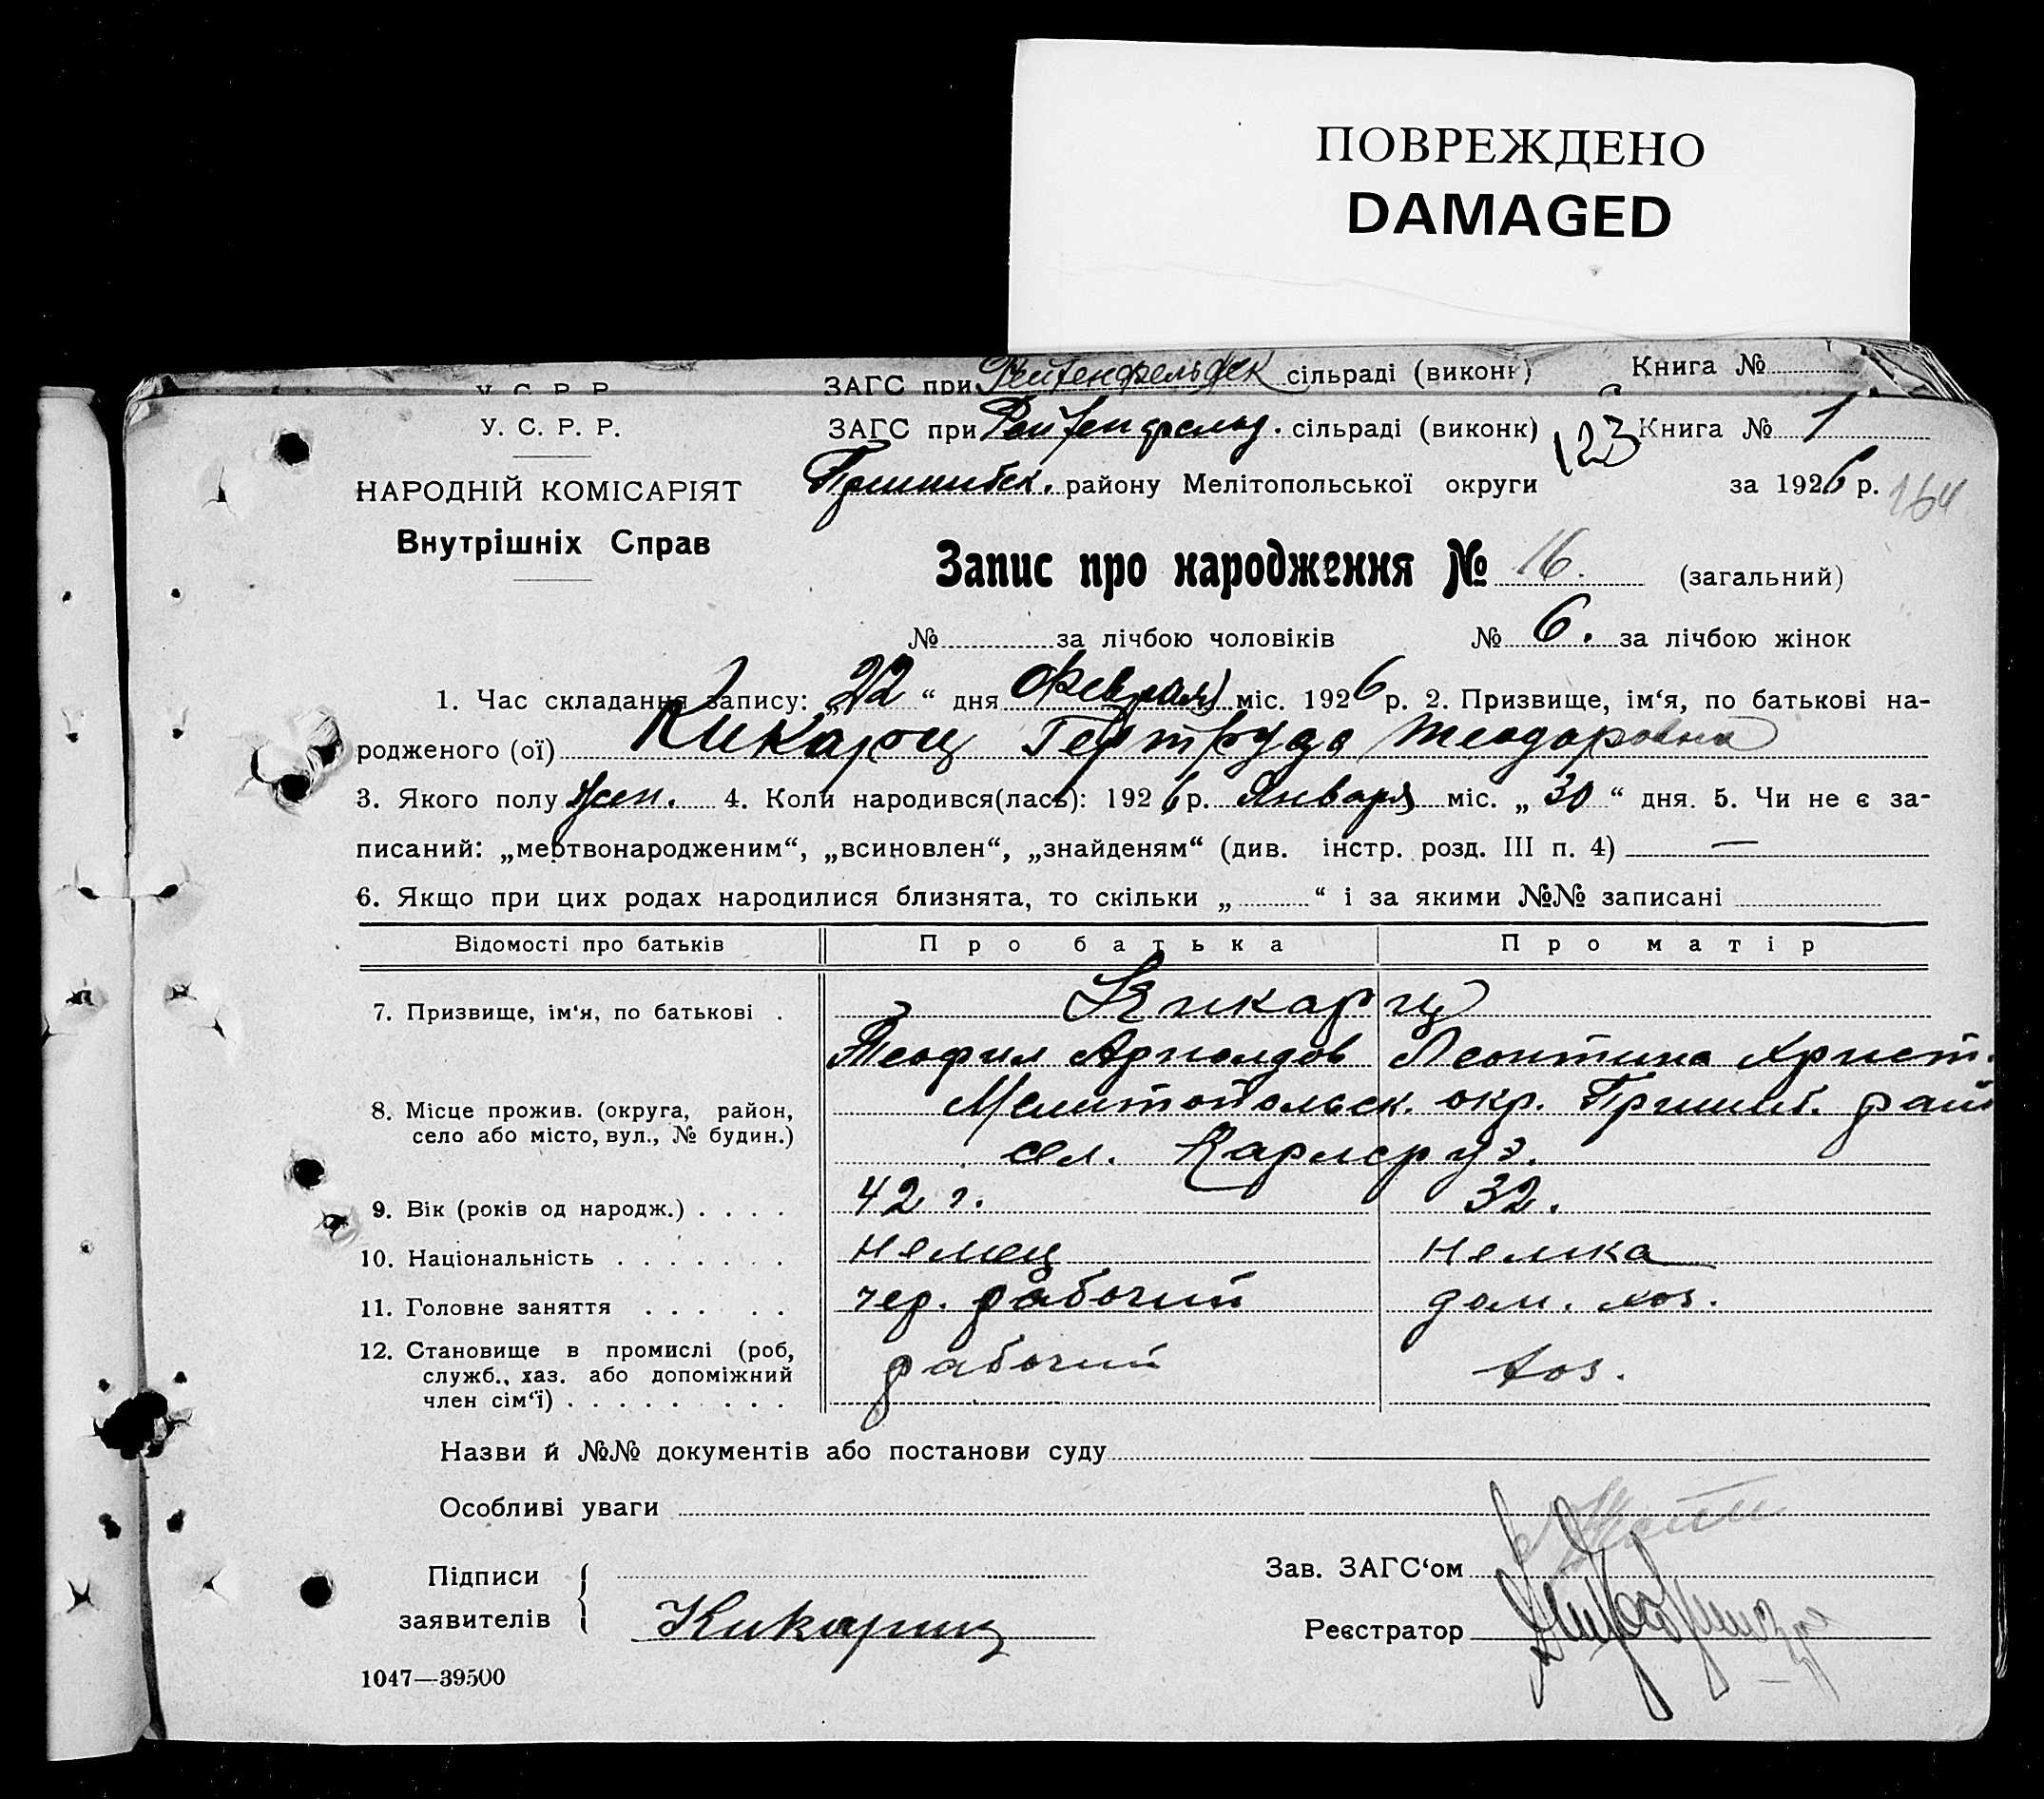 ПОВРЕЖДЕНО
DAMAGED
У. С. Р. Р. ЗАГС при Рейхенфельдск сільраді (виконк) Книга №
У. С. Р. Р. ЗАГС при Рейхенфельд. сільраді (виконк) 123 Книга № 1
НАРОДНІЙ КОМІСАРІЯТ Пришибск. району Мелітопольської округи за 1926 р. 164
Внутрішніх Справ
Запис про народження № 16. (загальний)
№ за лічбою чоловіків № 6. за лічбою жінок
1. Час складання запису: „22“ дня Февраля міс. 1926 р. 2. Призвище, ім‘я, по батькові на-
родженого (ої) Кикарц Гертруда Теодоровна
3. Якого полу жен. 4. Коли народився(лась): 1926 р. Января міс. „30“ дня. 5. Чи не є за-
писаний: „мертвонародженим“, „всиновлен“, „знайденям“ (див. інстр. розд. III п. 4) —
6. Якщо при цих родах народилися близнята, то скільки „ “ і за якими №№ записані
Відомості про батьків Про батька Про матір
7. Призвище, ім‘я, по батькові . Кикарц
Теофил Арнолдов Леонтина Христ.
8. Місце прожив. (округа, район, село або місто, вул., № будин.) Мелитопольск. окр. Пришиб. рай
сел. Карлсруэ.
9. Вік (років од народж.) . . . . 42 г. 32.
10. Національність . . . . . . . немец немка
11. Головне заняття . . . . . чер. рабочий дом. хоз.
12. Становище в промислі (роб, рабочий хоз.
служб., хаз. або допоміжний
член сім‘ї) . . . . . . . . .
Назви й №№ документів або постанови суду
Особливі уваги
Підписи Зав. ЗАГС‘ом
заявителів Кикариц Реєстратор
1047—39500